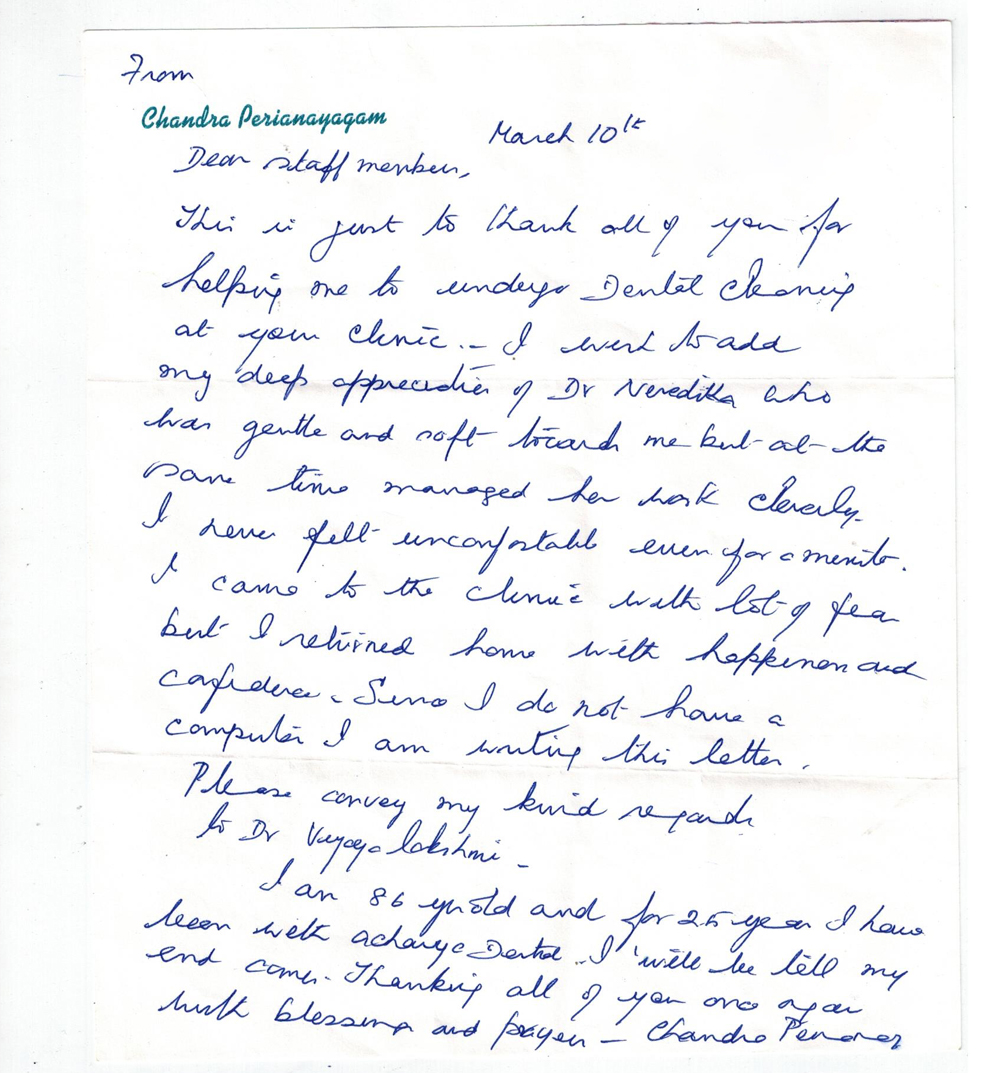 From
Chandra Perianayagam
March 10th
Dear staff members,
This is just to thank all of you for
helping me to undergo Dental cleaning
at your clinic. - I want to add
my deep appreciation of Dr Nereditha who
was gentle and soft towards me but at the
same time managed her work cleverly.
I never felt uncomfortable even for a minute.
I came to the clinic with lot of fear
but I returned home with happiness and
confidence. Since I do not have a
computer I am writing this letter.
Please convey my kind regards
to Dr Vijayalakshmi -
I am 86 yr old and for 25 year I have
been with acharya Dental. I will be till my
end comes. Thanking all of you once again
with blessings and prayers - Chandra